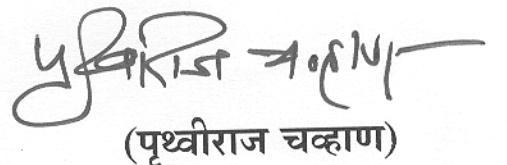 पृथ्वीराज चव्हाण
(पृथ्वीराज चव्हाण)